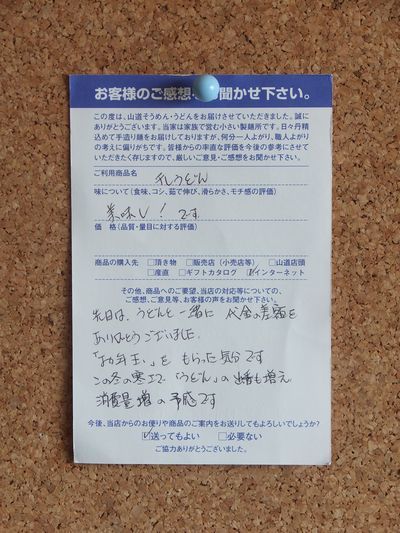 お客様のご感想お聞かせ下さい。
この度は、山道そうめん・うどんをお届けさせていただきました。誠に
ありがとうございます。当家は家族で営む小さい製麺所です。日々丹精
込めて手造り麺をお届けしておりますが、何分一人よがり、職人よがり
の考えに偏りがちです。皆様からの率直な評価を今後の参考にさせて
いただきたく存じますので、厳しいご意見・ご感想をお聞かせ下さい。
ご利用商品名 干しうどん
味について(食味、コシ、茹で伸び、滑らかさ、モチ感の評価)
美味し! です
価 格(品質・量目に対する評価)
商品の購入先 □頂き物 □販売店(小売店等) □山道店頭
□産直 □ギフトカタログ ☑インターネット
その他、商品へのご要望、当店の対応等についての、
ご感想、ご意見等、お客様の声をお聞かせ下さい。
先日は、うどんと一緒に 代金の差額を
ありがとうございました。
「お年玉」を もらった気分です
この冬の寒さで「うどん」の 出番も増え
消費量増の予感です
今後、当店からのお便りや商品のご案内をお送りしてもよろしいでしょうか?
☑送ってもよい □必要ない
ご協力ありがとうございました。